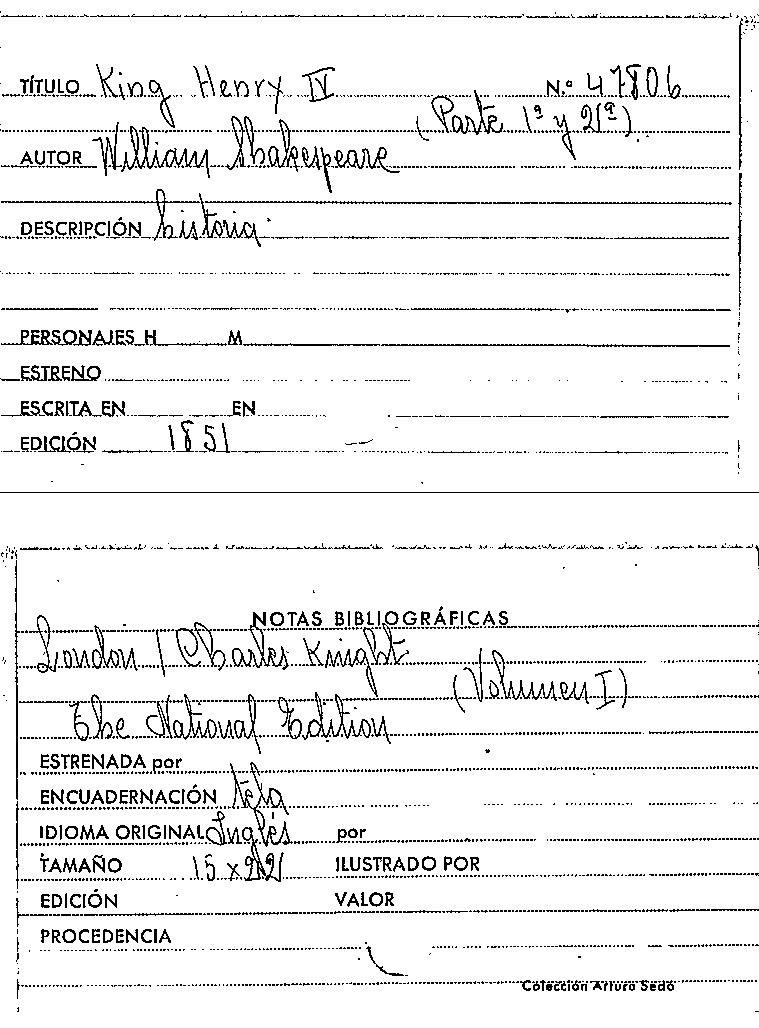 TÍTULO King Henry IV N.º 47806
(Parte 1ª y 2ª)
AUTOR William Shakespeare
DESCRIPCIÓN historia
PERSONAJES H M
ESTRENO
ESCRITA EN EN
EDICIÓN 1851
NOTAS BIBLIOGRÁFICAS
London / Charles Knight
(Volumen I)
The National Edition
ESTRENADA por
ENCUADERNACIÓN tela
IDIOMA ORIGINAL Inglés por
TAMAÑO 15 x 22 ILUSTRADO POR
EDICIÓN VALOR
PROCEDENCIA
Colección Arturo Sedó